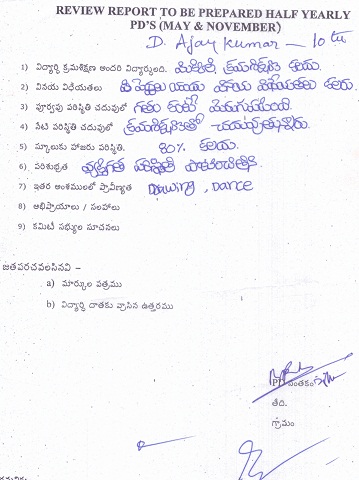 REVIEW REPORT TO BE PREPARED HALF YEARLY
PD'S (MAY & NOVEMBER)
D. Ajay kumar — 10th
1) విద్యార్థి క్రమశిక్షణ అందరి విద్యార్థులది. క్రమశిక్షణ కలదు.
2) వినయ విధేయతలు వినయ విధేయతలు కలదు.
3) పూర్వపు పరిస్థితి చదువులో గతం కంటే మెరుగుపడింది.
4) నేటి పరిస్థితి చదువులో క్రమశిక్షణతో చదువుతున్నాడు.
5) స్కూలుకు హాజరు పరిస్థితి. 80% కలదు.
6) పరిశుభ్రత వ్యక్తిగత
7) ఇతర అంశములలో ప్రావీణ్యత Drawing, Dance
8) అభిప్రాయాలు / సలహాలు
9) కమిటీ సభ్యుల సూచనలు
జతపరచవలసినవి -
a) మార్కుల పత్రము
b) విద్యార్థి దాతకు వ్రాసిన ఉత్తరము
PD సంతకం
తేది.
గ్రామం